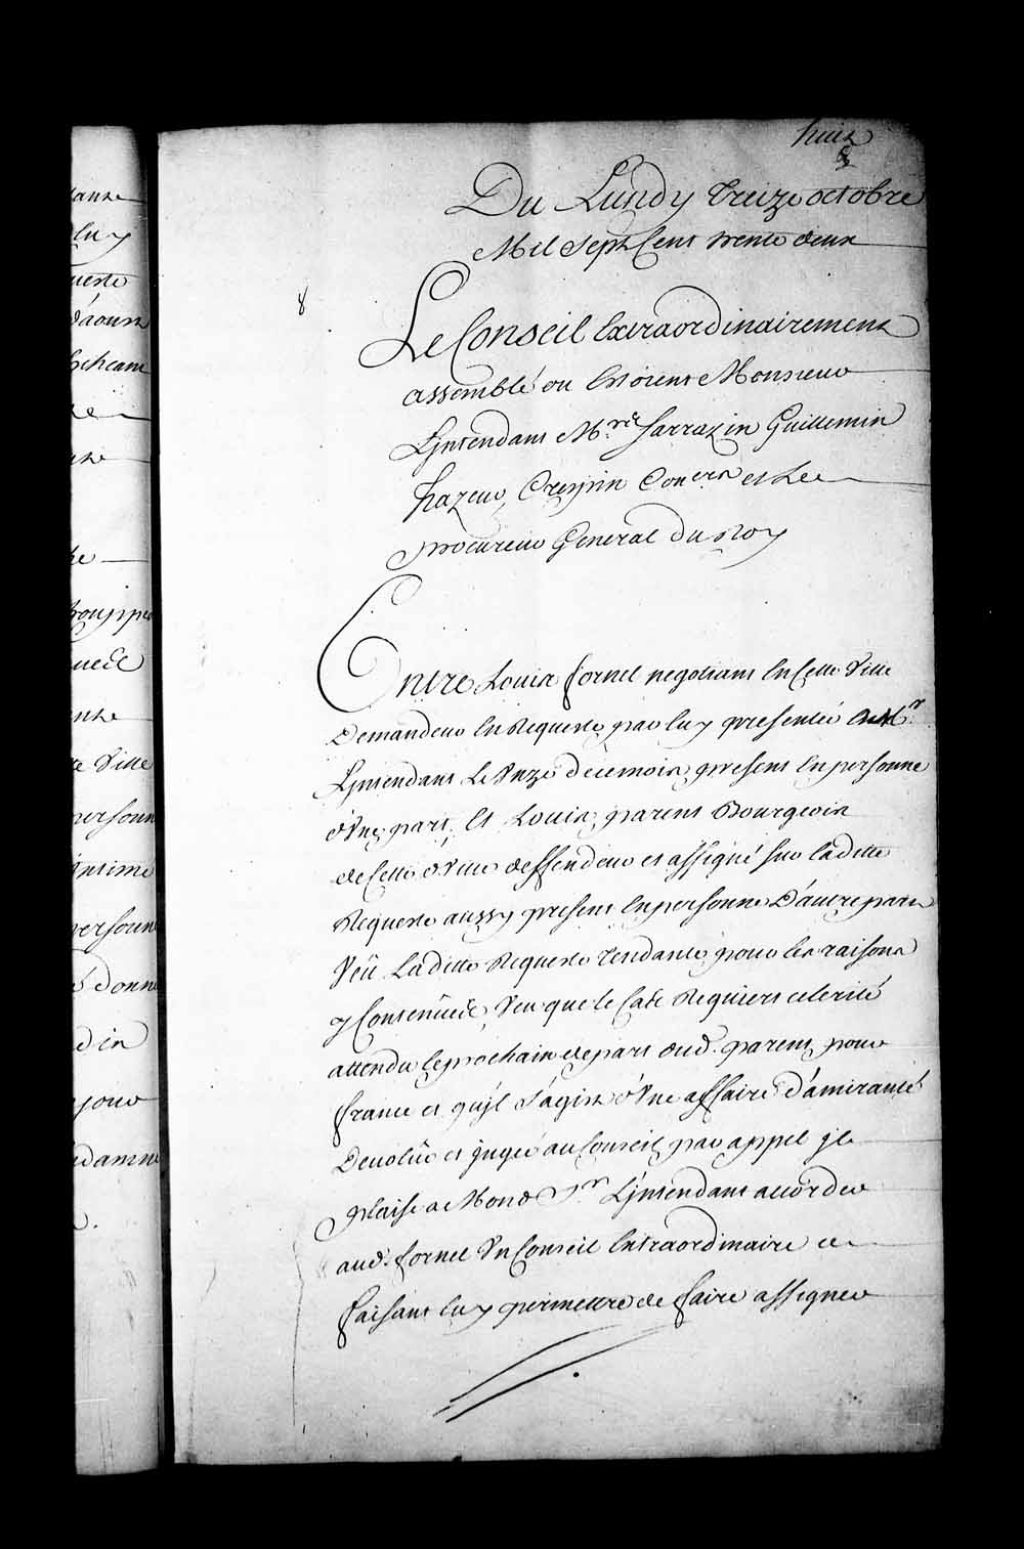 huit
8
Du Lundy Treize octobre
Mil Sept Cent trente deux
8
Le Conseil Extraordinairement
assemblé ou Estoient Monsieur
L'jntendant Mrs Sarrazin Guillemin
hazeur, Crespin Coners et Le
procureur General Du Roy
Entre Louis fornel negotiant En Cette Ville
Demandeur En Requeste par luy presentée a Mr
L'jntendant Le Unze de ce mois, present En personne
d'Une part, Et Louis parent Bourgeois
de Cette d. Ville deffendeur et assigné sur laditte
Requeste aussy present En personne D'autre part
Veü Laditte Requeste tendante pour les raisons
y Contenües, Veu que le Cas Requiert celerité
attendu le prochain depart dud. parent pour
france et qu'jl S'agist d'Une affaire d'amirauté
Devolüe et jugée au Conseil par appel jl
plaise a Mond. Sr. L'jntendant accorder
aud. fornel Un Conseil Extraordinaire ce
faisant luy permettre de faire assigner
ante
luy
ueste
d'aoust
ante
Ville
personne
jntimé
personne
donné
jour
damne